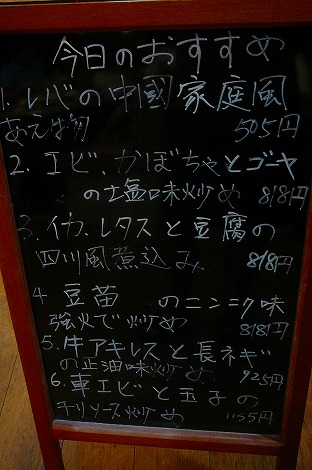 今日のおすすめ
1. レバの中國家庭風
あえ物 505円
2. エビ、かぼちゃとゴーヤ
の塩味炒め 818円
3. イカ、レタスと豆腐の
四川風煮込み 818円
4 豆苗 のニンニク味
強火で炒め 818円
5. 牛アキレスと長ネギ
の正油味炒め 925円
6. 車エビと玉子の
チリソース炒め 1155円